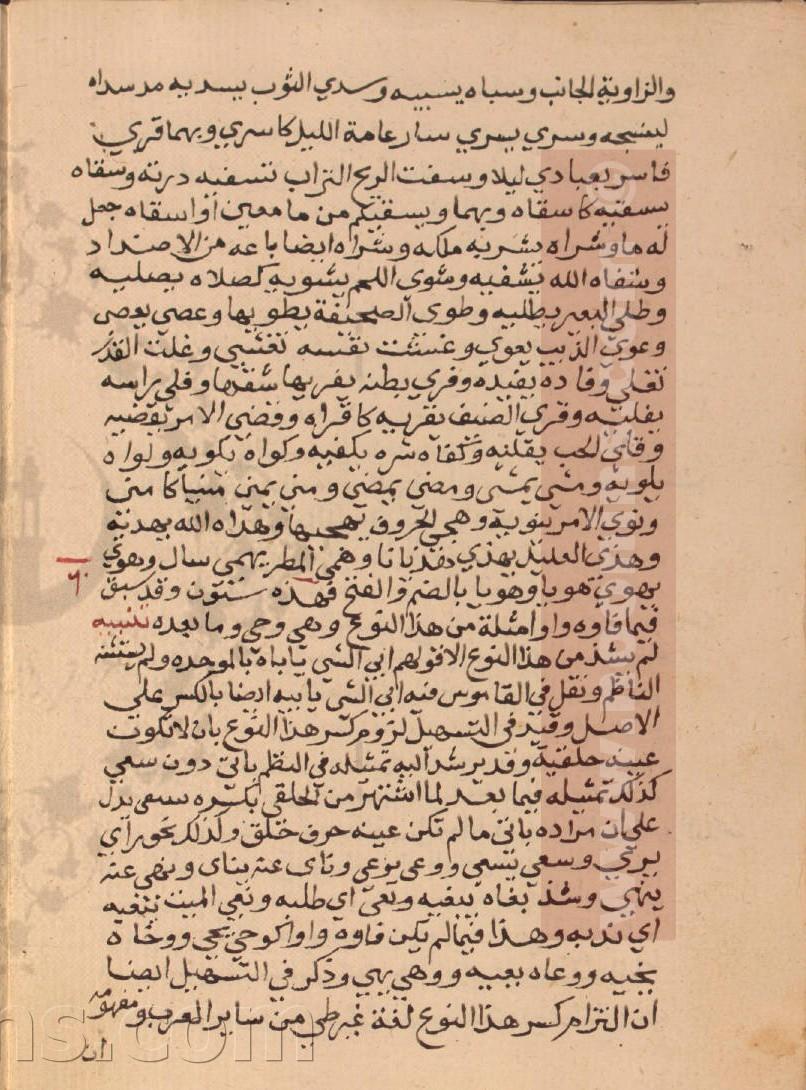 والزاوية الجانب وسباه يسبيه وسدي الثوب يسديه مد سداه
لينسجه وسري يسري سار عامة الليل كاسري وبهما قري
فاسر بعبادي ليلا وسفت الريح التراب تسفيه درته وسقاه
يسقيه كاسقاه وبهما ويسقيكم من ما معين أو اسقاه جعل
له ما وشراه يشريه ملكه وشراه ايضا باعه من الاضداد
وشفاه الله يشفيه وشوى اللحم يشويه كصلاه يصليه
وطلي البعير يطليه وطوى الصحيفة يطويها وعصي يعصي
وعوي الذيب يعوي وغشت نفسه تغثي وغلت القدر
تغلي وفاده يفيده وفري بطنه يفريها شقها وفلي راسه
يفليه وقري الضيف يقريه كاقراه وقضي الامر يقضيه
وقلي الحب يقليه وكفاه شره يكفيه وكواه يكويه ولواه
يلويه ومشي يمشي ومضي يمضي ومني يمني منيا كامني
ونوي الامر ينويه وهجي الحروف يهجيها وهداه الله يهديه
وهذي العليل يهذي هذيانا وهمي المطر يهمي سال وهوي
يهوي هويا وهويا بالضم والفتح فهذه ستون وقد سبق
٦٠
فيما فاوه واو امثلة من هذا النوع وهي وحي وما بعده تنبيه
لم يشذ من هذا النوع الا قولهم ابي الشي ياباه بالموحده ولم يستثنه
الناظم ونقل في القاموس فيه ابي الشي يابيه ايضا بالكسر علي
الاصل وقيد في التسهيل لزوم كسر هذا النوع بان لا تكون
عينه حلقية وقد يرشد اليه تمثيله في النظم باتي دون سعي
كذلك تمثيله فيما بعد لما اشتهر من الحلقي بكسره سعي يدل
علي ان مراده باتي ما لم تكن عينه حرف حلق ولذلك نحو راي
يري وسعي يسعي ووعي يوعي وناي عنه يناي ونهي عنه
ينهي وشذ بغاه يبغيه وبغي اي طلبه ونعي الميت ينعيه
اي ندبه وهذا فيما لم يكن فاوه واوا كوحي يحي ووخاه
يخيه ووعاه يعيه ووهي يهي وذكر في التسهيل ايضا
ان التزام كسر هذا النوع لغة غير طي من ساير العرب ومفهومه
ان